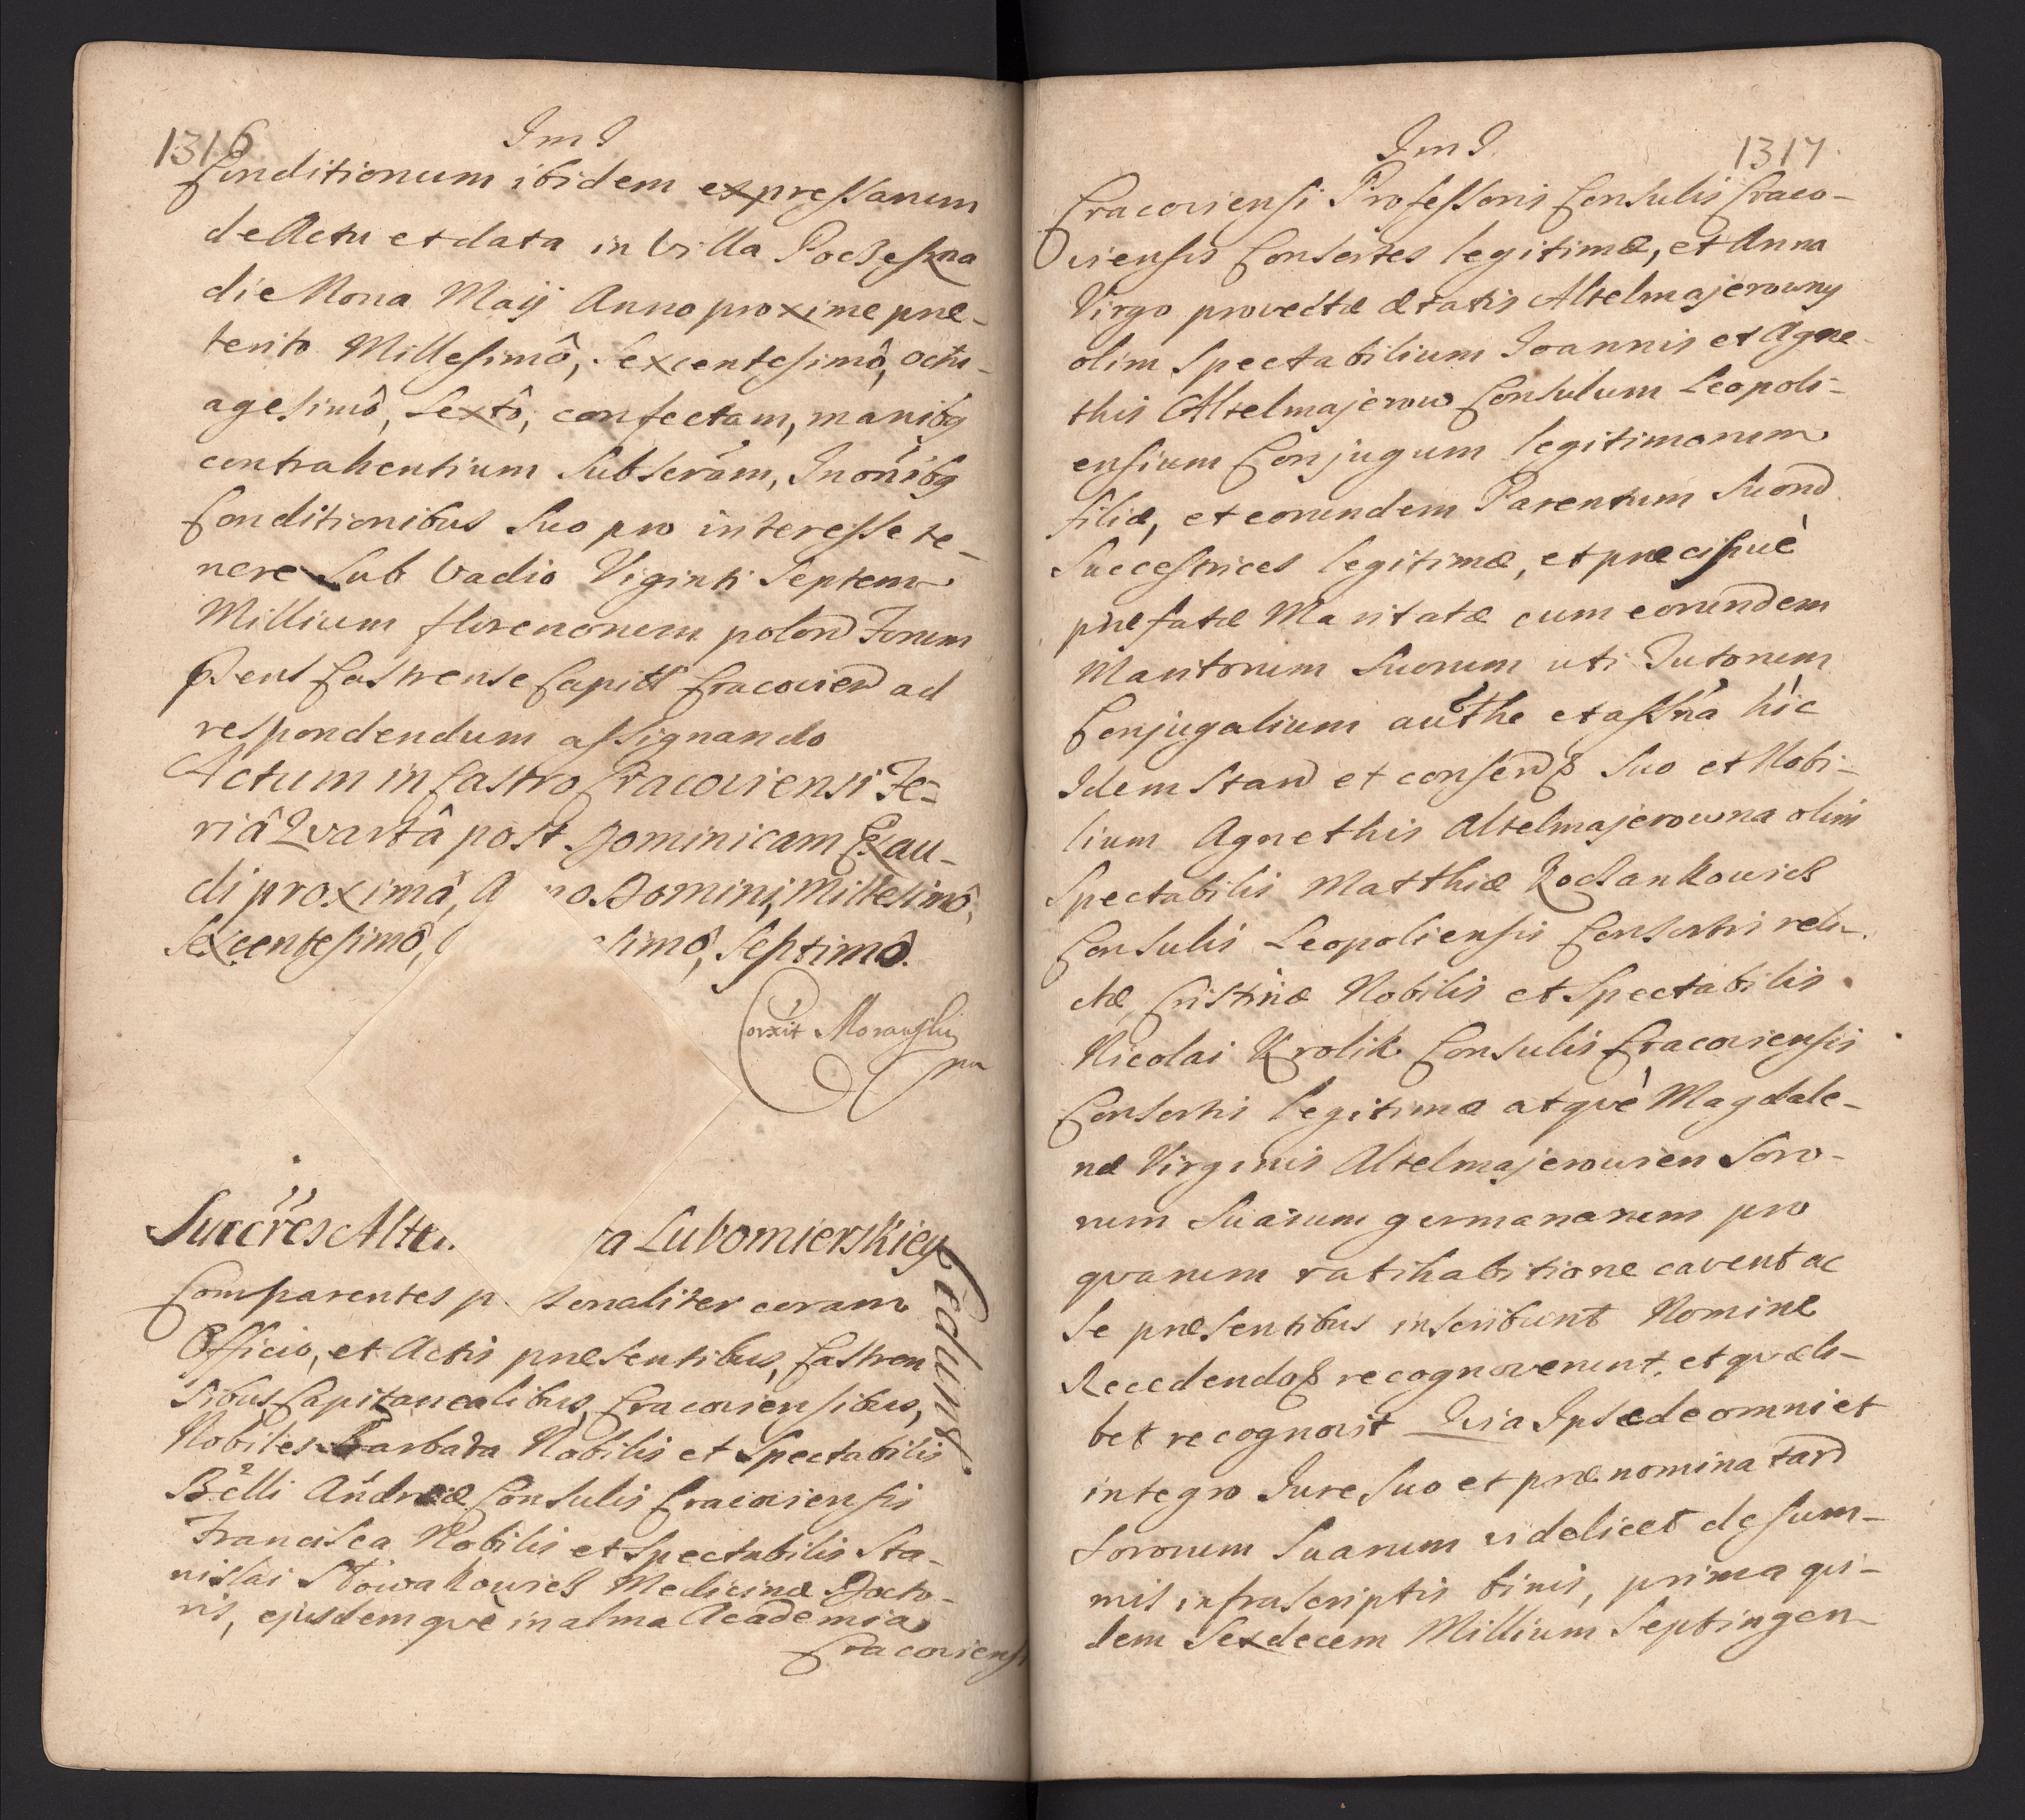 1316
ImI
Conditionum ibidem expressarum
de Actu et data in Villa Poczesna
die Nona Maij Anno proxime præ-
terito Millesimô, Sexcentesimô, octu-
agesimô, Sextô, confectam, manibq
contrahentium Subscram, In onibq
Conditionibus Suo pro interesse te-
nere Sub Vadio Viginti Septem
Millium florenorum polon Forum
Castrense Capitl Cracovien ad
respondendum assignando
Actum in Castro Cracoviensi Fe-
riâ Qvartâ post Dominicam Exau-
di proximâ, A no Domini, Millesimô,
Sexcentesimô, esimô, Septimô.
Correxit
Succres Alte ra Lubomierskiey
Cedunt
Comparentes p sonaliter coram
Officio, et Actis præsentibus, Castren
sibus Capitanealibus, Cracoviensibus,
Nobiles Barbara Nobilis et Spectabilis
Belli Andreæ Consulis Cracoviensis
Francisca Nobilis et Spectabilis Sta-
nislai Słowakowicz Medicinæ Docto-
ris, ejusdemqvè in alma Academia
Cracoviensi
ImI
1317
Cracoviensi Professoris Consulis Craco-
viensis Consortes legitimæ, et Anna
Virgo provectæ ætatis Altelmajerowny
olim Spectabilium Joannis et Agne-
this Altelmajerow Consulum Leopoli-
ensium Conjugum legitimorum
filiæ, et eorundem Parentum Suord
Successtrices legitimæ, et præcipuè
præfatæ Maritatæ cum eorundem
Maritorum Suorum uti Tutorum
Conjugalium authe et assña hic
Idem Stan et consen Suo et Nobi-
lium Agnethis Altelmajerowna olim
Spectabilis Matthiæ Koczankowicz
Consulis Leopoliensis Consortis reli-
ctæ Cristinæ Nobilis et Spectabilis
Nicolai Krolik Consulis Cracoviensis
Consortis legitimæ atqvè Magdale-
næ Virginis Altelmajerowien Soro-
rum Suarum germanarum pro
qvarum ratihabitione cavent ac
Se præsentibus inscribunt Nomine
Recedendo recognoverunt, et qvæli-
bet recognovit Qvia Ipsæ de omni et
integro Jure Suo et prænominatard
Sororum Suarum videlicet de Sum-
mis infrascriptis binis, prima qvi-
dem Sexdecem Millium Septingen